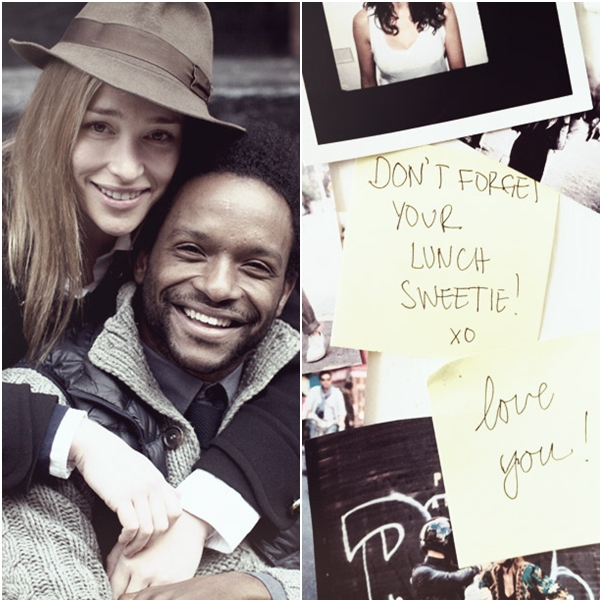 DON'T FORGET
YOUR
LUNCH
SWEETIE!
XO
love
you!